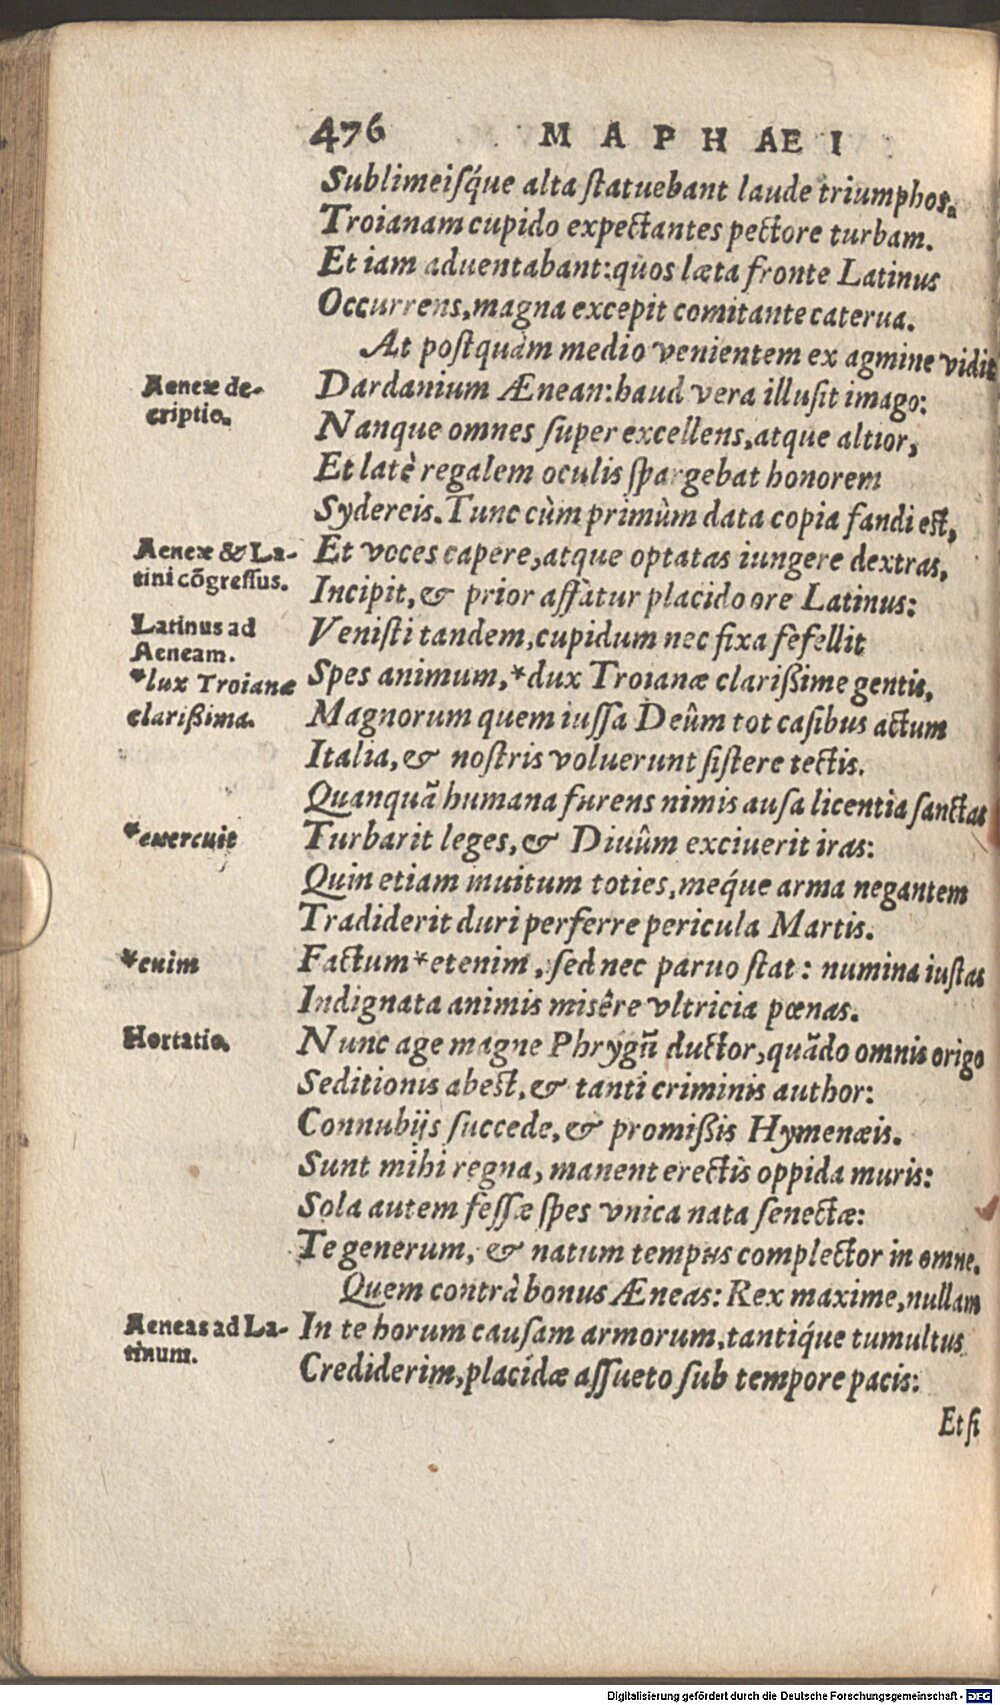 476 MAPHAEI
Sublimeisq́ue alta statuebant laude triumphos.
Troianam cupido expectantes pectore turbam.
Et iam aduentabant: quos læta fronte Latinus
Occurrens, magna excepit comitante caterua.
At postquàm medio venientem ex agmine vidit
Aeneæ de-
criptio.
Dardanium Ænean: haud vera illusit imago:
Nanque omnes super excellens, atque altior,
Et latè regalem oculis spargebat honorem
Sydereis. Tunc cùm primùm data copia fandi est,
Aeneæ & La-
tini cõgressus.
Et voces capere, atque optatas iungere dextras,
Incipit, & prior affatur placido ore Latinus:
Latinus ad
Aeneam.
Venisti tandem, cupidum nec fixa fefellit
*lux Troianæ
clarißima.
Spes animum, *dux Troianæ clarißime gentis,
Magnorum quem iussa Deûm tot casibus actum
Italia, & nostris voluerunt sistere tectis.
Quanquã humana furens nimis ausa licentia sanctas
*exercuit
Turbarit leges, & Diuûm exciuerit iras:
Quin etiam inuitum toties, meq́ue arma negantem
Tradiderit duri perferre pericula Martis.
*enim
Factum *etenim, sed nec paruo stat: numina iustas
Indignata animis misêre vltricia pœnas.
Hortatio.
Nunc age magne Phrygũ ductor, quãdo omnis origo
Seditionis abest, & tanti criminis author:
Connubijs succede, & promißis Hymenæis.
Sunt mihi regna, manent erectis oppida muris:
Sola autem fessæ spes vnica nata senectæ:
Te generum, & natum tempus complector in omne.
Quem contrà bonus Æneas: Rex maxime, nullam
Aeneas ad La-
tinum.
In te horum causam armorum, tantiq́ue tumultus
Crediderim, placidæ assueto sub tempore pacis:
Et si
Digitalisierung gefördert durch die Deutsche Forschungsgemeinschaft - DFG